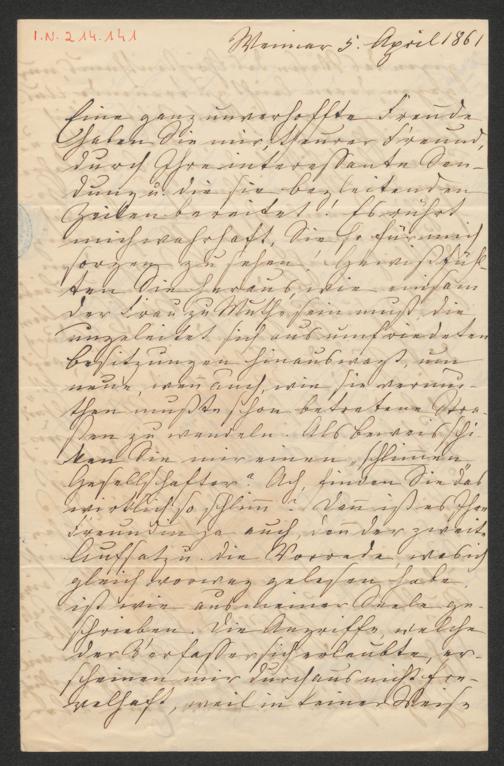 I.N. 214.141
Weimar 5. April 1861
Eine ganz unverhoffte Freude
haben Sie mir, theurer Freund,
durch Ihre interessante Sen-
dung u. die sie begleitenden
Zeilen bereitet! Es rührt
mich wahrhaft, Sie so für mich
sorgen zu sehen! Gewiß fühl-
ten Sie heraus, wie einsam
der Frau zu Muthe sein muß, die
ungeleitet sich aus umfriedeten
Besitzungen hinauswagt, um
neue, wenn auch, wie sie vermu-
then mußte schon betretene Stra-
ßen zu wandeln. Als Beweis schi-
ken Sie mir einen „schlimmen
Gesellschafter“. Ach, finden Sie das
wirklich so schlimm? Dann ist es Ihre
Freundin ja auch, denn der zweite
Aufsatz u. die Vorrede, was ich
gleich vorweg gelesen habe
ist wie aus meiner Seele ge-
schrieben. Die Angriffe, welche
der Verfasser sich erlaubte, er-
scheinen mir durchaus nicht fre-
velhaft, weil in keiner Weise